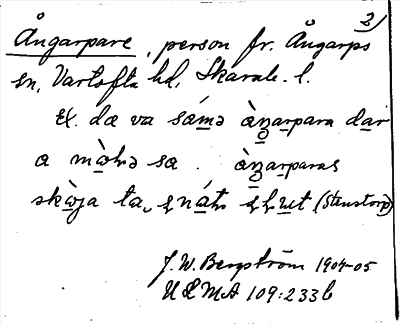 2)
Ångarpare, person fr. Ångarps
sn, Vartofta hd, Skarab. l.
Ex. dæ va sámə àŋarpara dar
a mòhə sa. àŋarparas
skòja ta,
(Stenstorp)
J. W. Bergström 1904-05
ULMA 109:233b